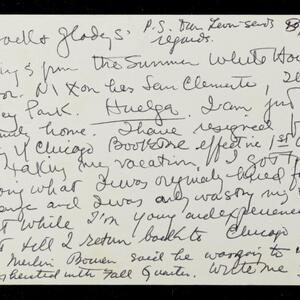 P.S. Dan Leon sends
regards.
Jack & Gladys:
5 pm the Summer White Hou
Nixon has San Clemente, I
ey Park. Huelga. I am just
home. I have resigned
of Chicago Bookstore effective 1st
taking my vacation. I got
oing what I was originally hired fo
and I was only wasting my t
while I'm young and experienced
till I return back to Chicago
Merlin Bowen said he was going to
with Fall Quarter. Write me